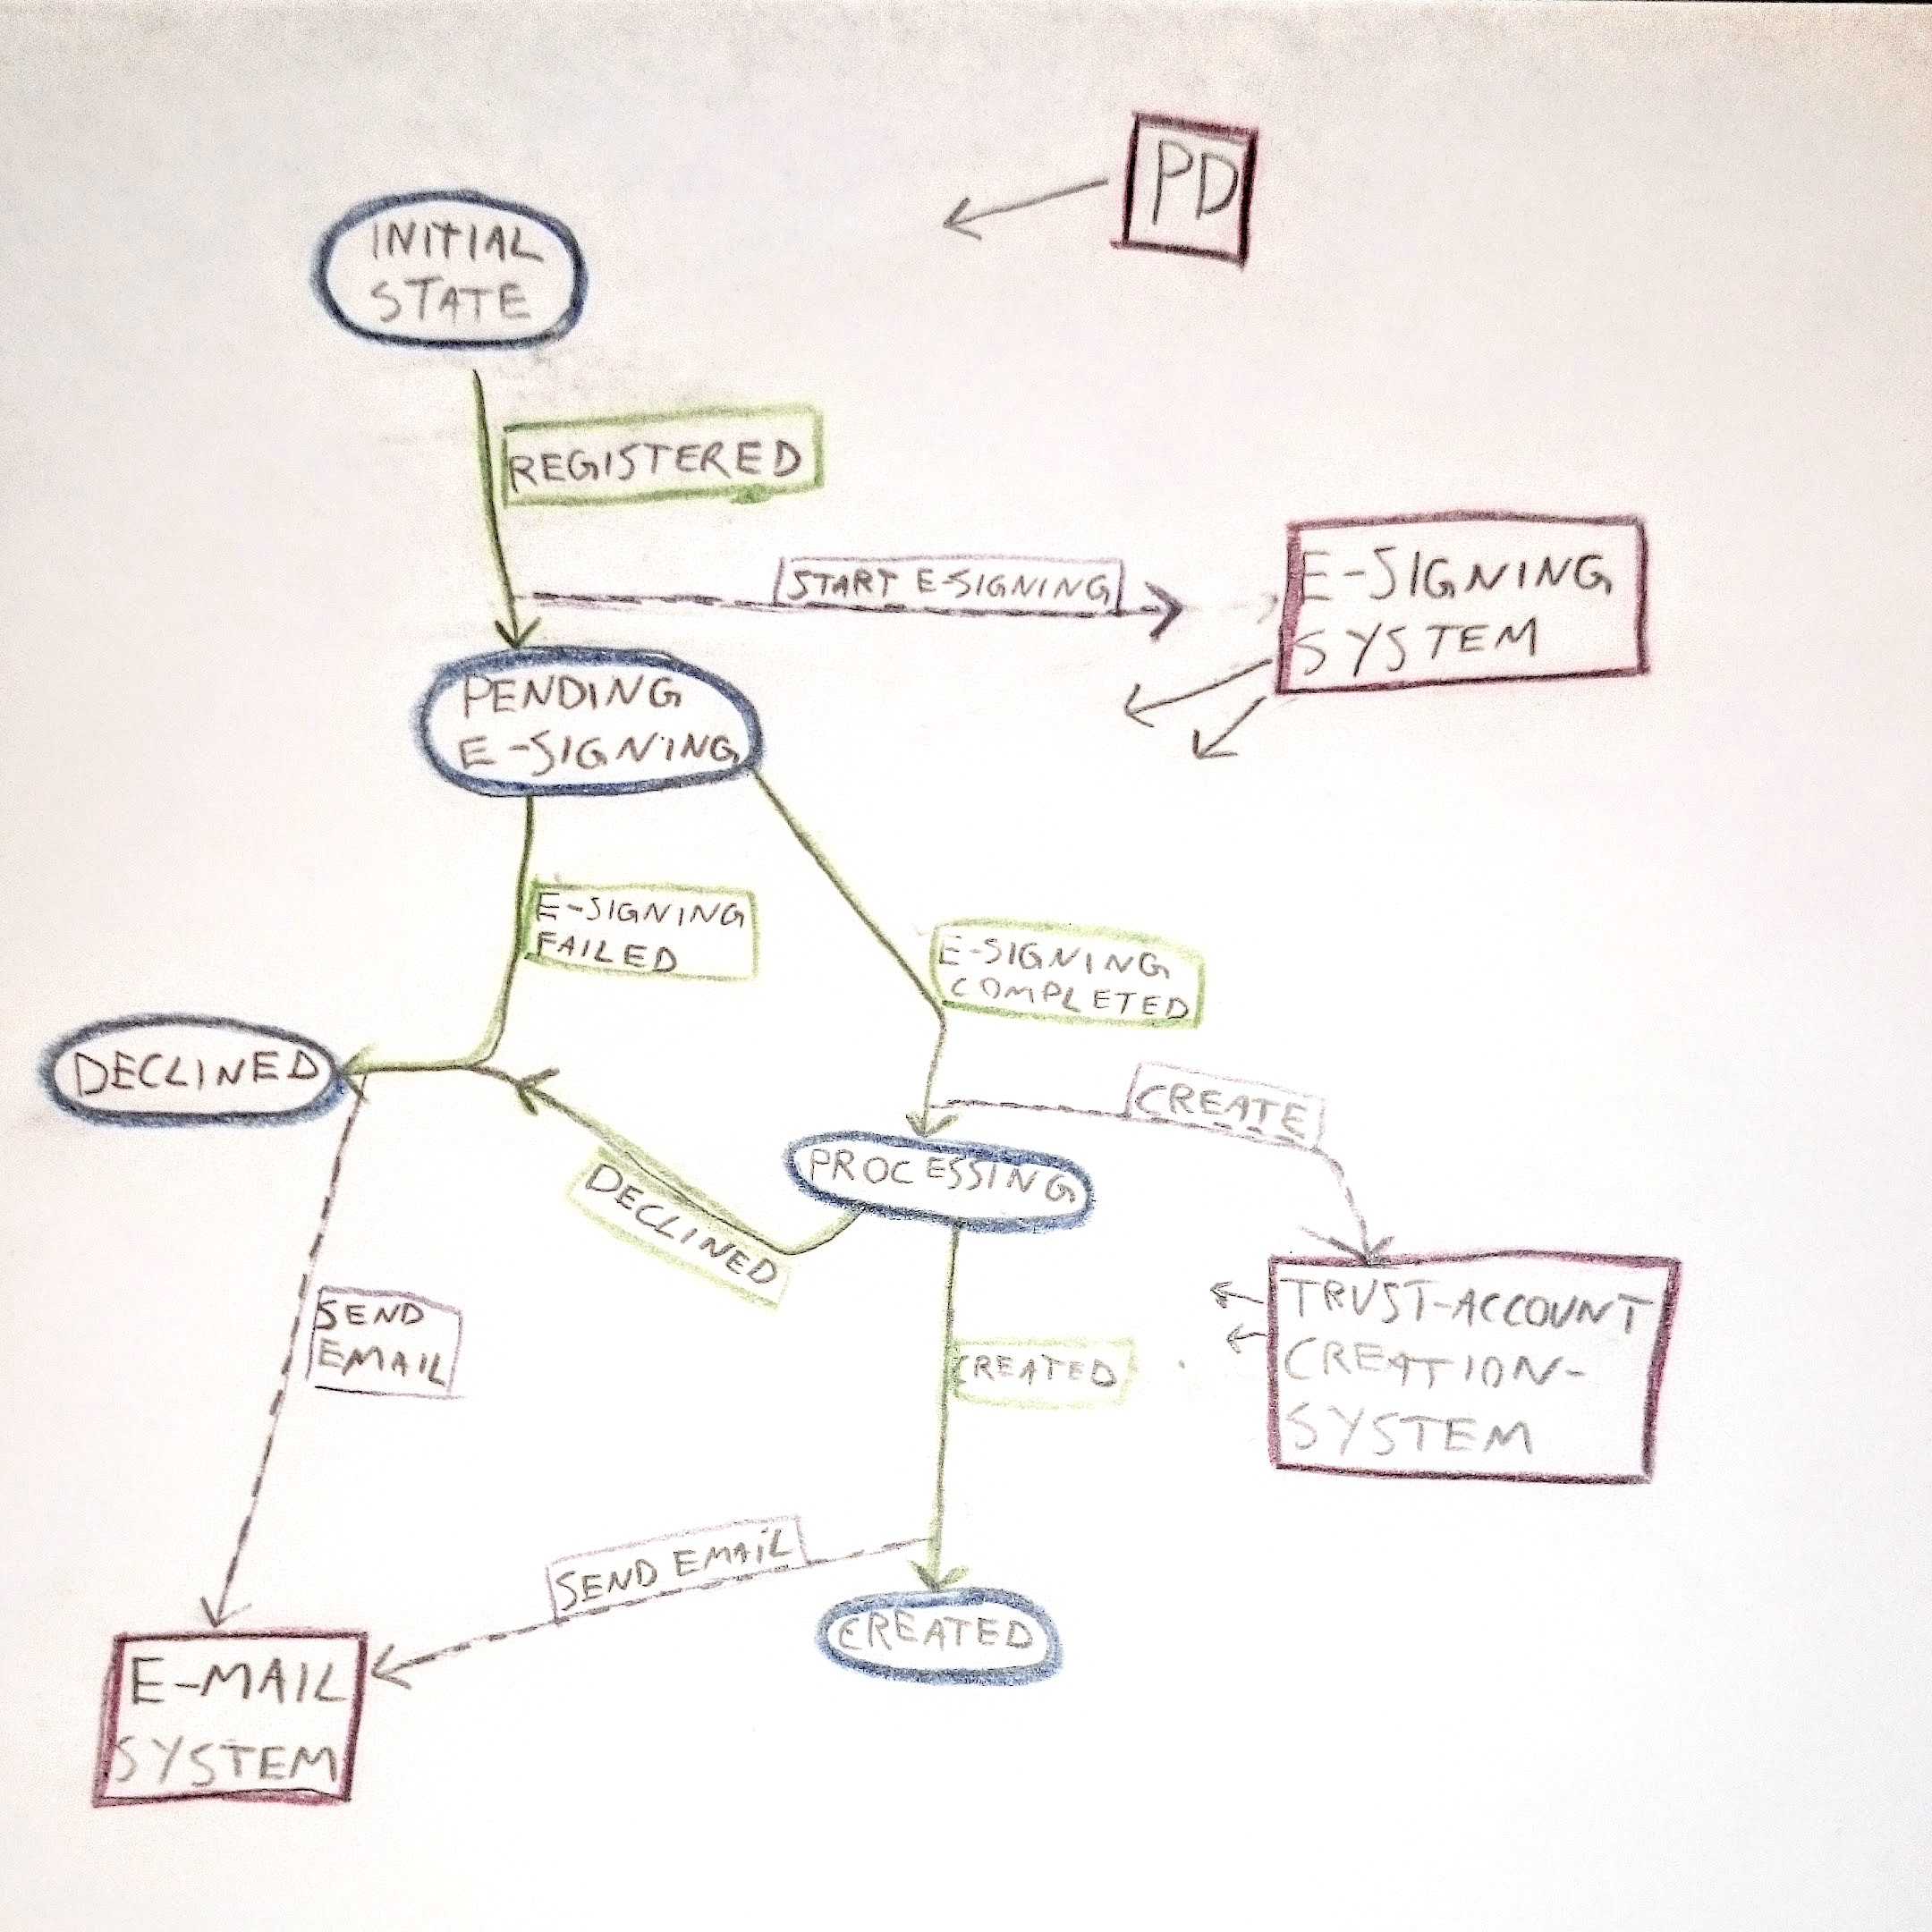 PD
INITIAL
STATE
REGISTERED
START E-SIGNING
E-SIGNING
SYSTEM
PENDING
E-SIGNING
E-SIGNING
FAILED
E-SIGNING
COMPLETED
DECLINED
CREATE
PROCESSING
DECLINED
SEND
EMAIL
CREATED
TRUST-ACCOUNT
CREATION-
SYSTEM
SEND EMAIL
CREATED
E-MAIL
SYSTEM